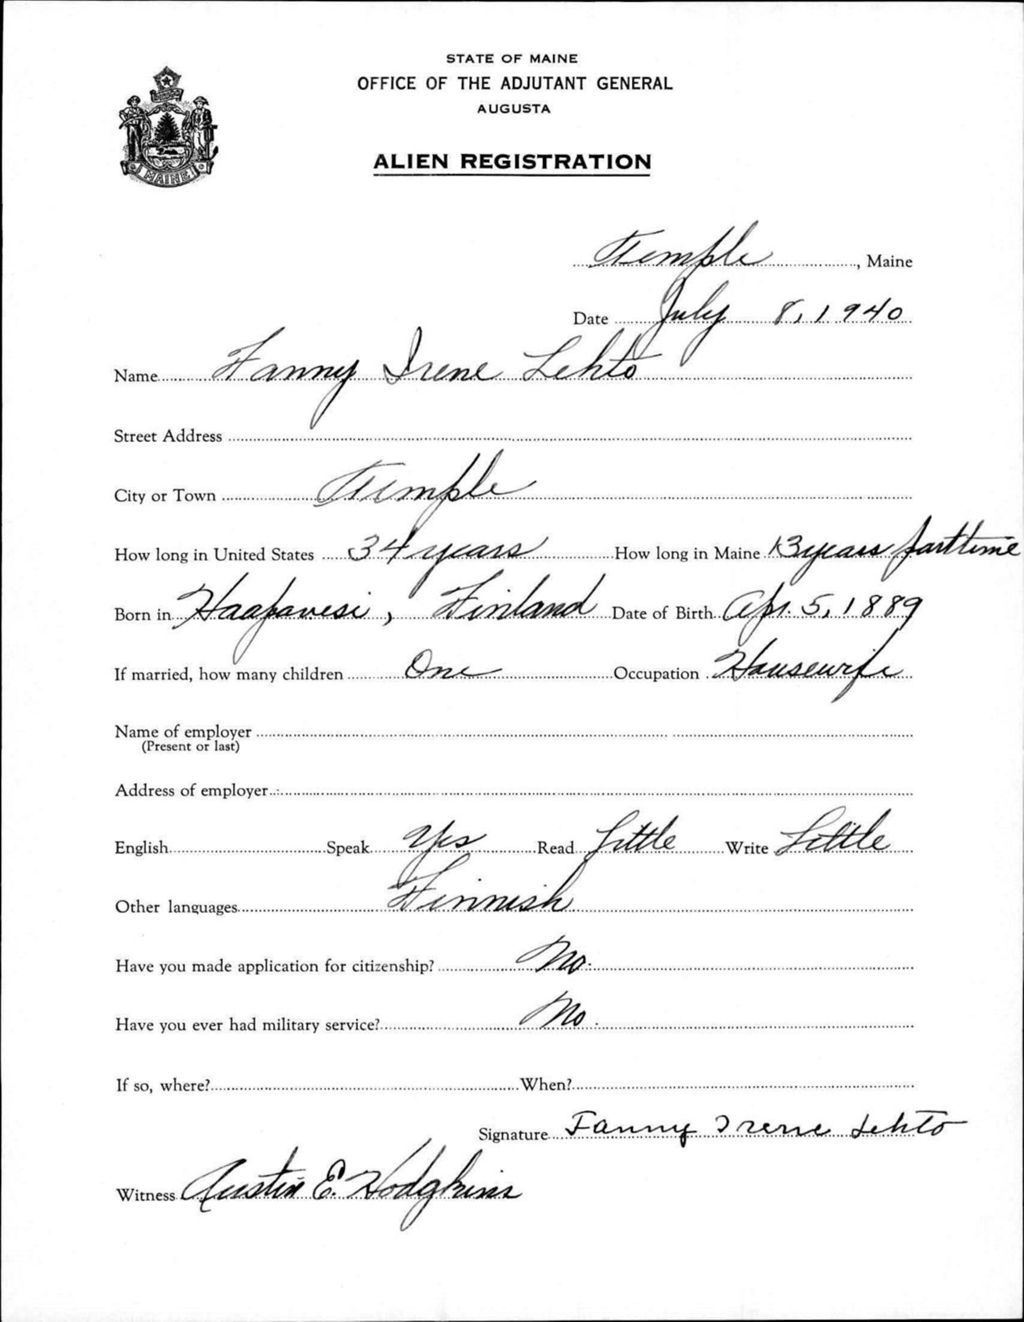 STATE OF MAINE
OFFICE OF THE ADJUTANT GENERAL
AUGUSTA
ALIEN REGISTRATION
MAINE
Temple, Maine
Date July 8, 1940
Name Fanny Irene Lehto
Street Address
City or Town Temple
How long in United States 34 years How long in Maine 13 years parttime
Born in Haapavesi, Finland Date of Birth Apr. 5, 1889
If married, how many children One Occupation Housewife
Name of employer
(Present or last)
Address of employer
English Speak Yes Read Little Write Little
Other languages Finnish
Have you made application for citizenship? No.
Have you ever had military service? No.
If so, where? When?
Signature Fanny Irene Lehto
Witness Austin E. Hodgkins